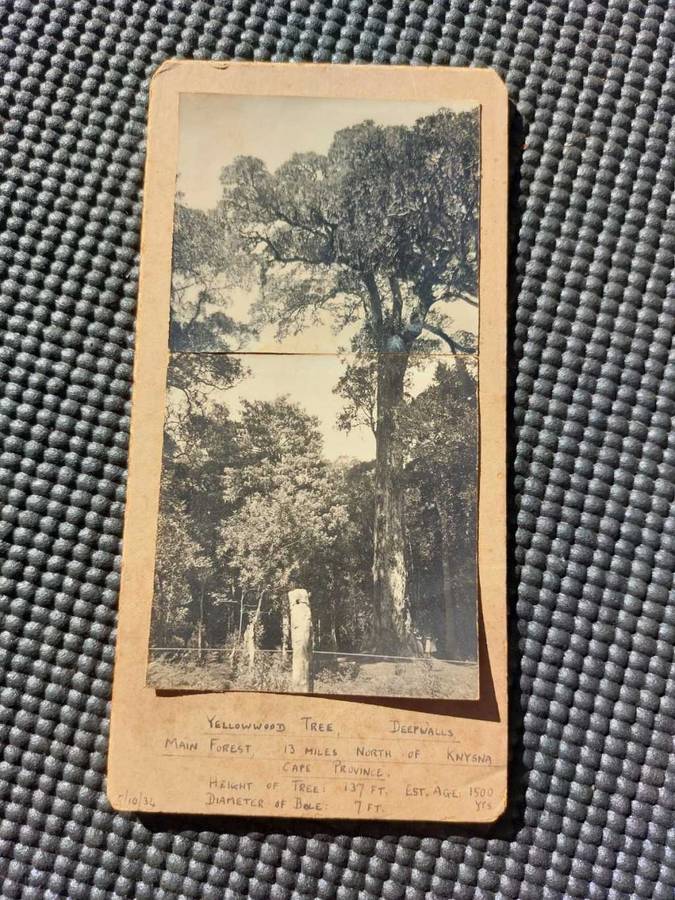 YELLOWWOOD TREE, DEEPWALLS,
MAIN FOREST. 13 MILES NORTH OF KNYSNA
CAPE PROVINCE.
HEIGHT OF TREE: 137 FT. EST. AGE: 1500 YRS
5/10/34 DIAMETER OF BOLE: 7 FT.